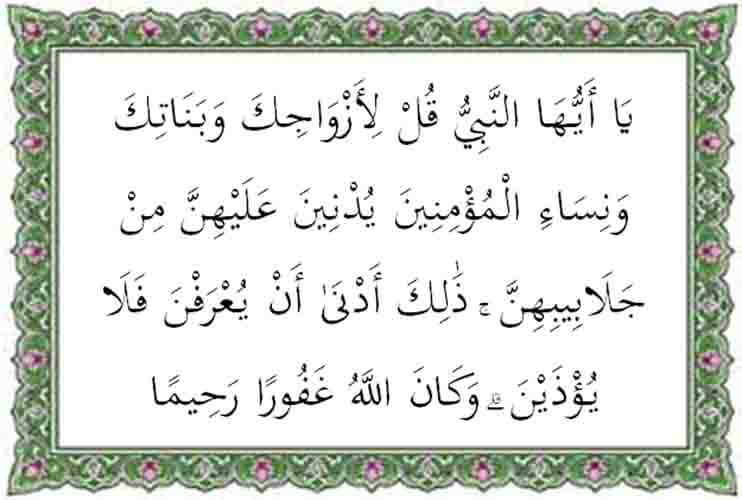 يَا أَيُّهَا النَّبِيُّ قُلْ لِأَزْوَاجِكَ وَبَنَاتِكَ
وَنِسَاءِ الْمُؤْمِنِينَ يُدْنِينَ عَلَيْهِنَّ مِنْ
جَلَابِيبِهِنَّ ۚ ذَٰلِكَ أَدْنَىٰ أَنْ يُعْرَفْنَ فَلَا
يُؤْذَيْنَ ۗ وَكَانَ اللَّهُ غَفُورًا رَحِيمًا